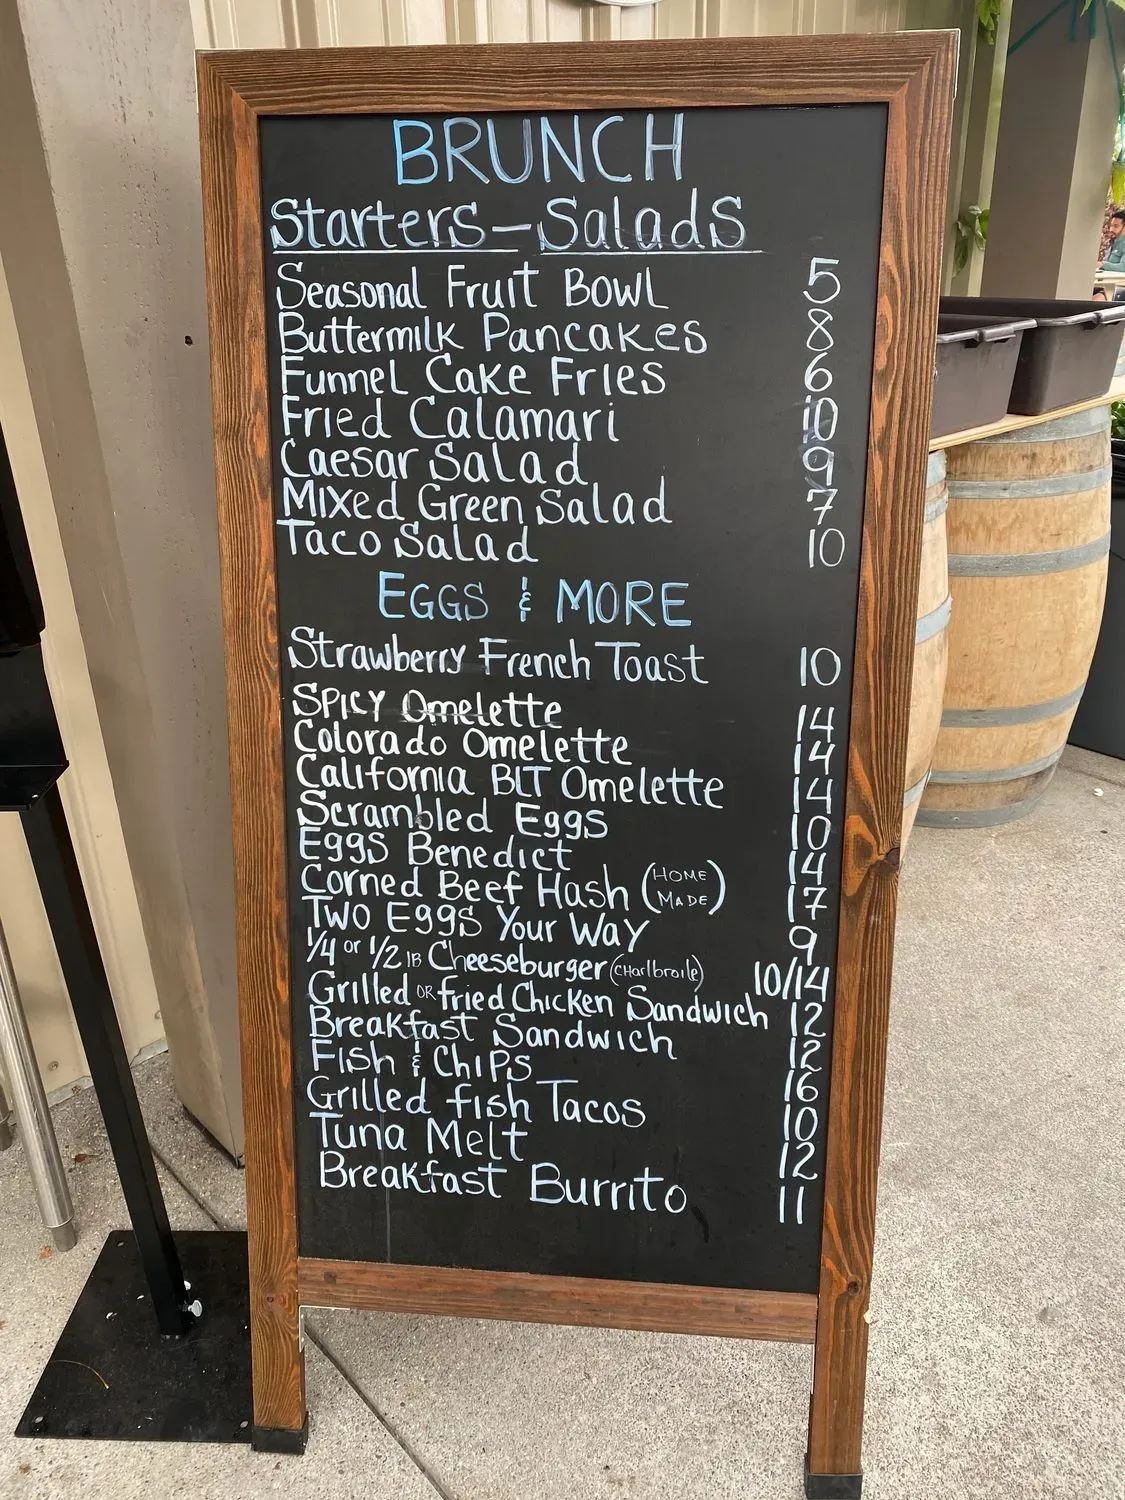 BRUNCH
Starters - Salads
Seasonal Fruit Bowl 5
Buttermilk Pancakes 8
Funnel Cake Fries 6
Fried Calamari 10
Caesar Salad 9
Mixed Green Salad 7
Taco Salad 10
EGGS & MORE
Strawberry French Toast 10
SPICY Omelette 14
Colorado Omelette 14
California BLT Omelette 14
Scrambled Eggs 10
Eggs Benedict 14
Corned Beef Hash (HOME MADE) 17
TWO EGGS Your Way 9
1/4 or 1/2 lB Cheeseburger (CHarlbroile) 10/14
Grilled OR fried Chicken Sandwich 12
Breakfast Sandwich 12
Fish & Chips 16
Grilled fish Tacos 10
Tuna Melt 12
Breakfast Burrito 11